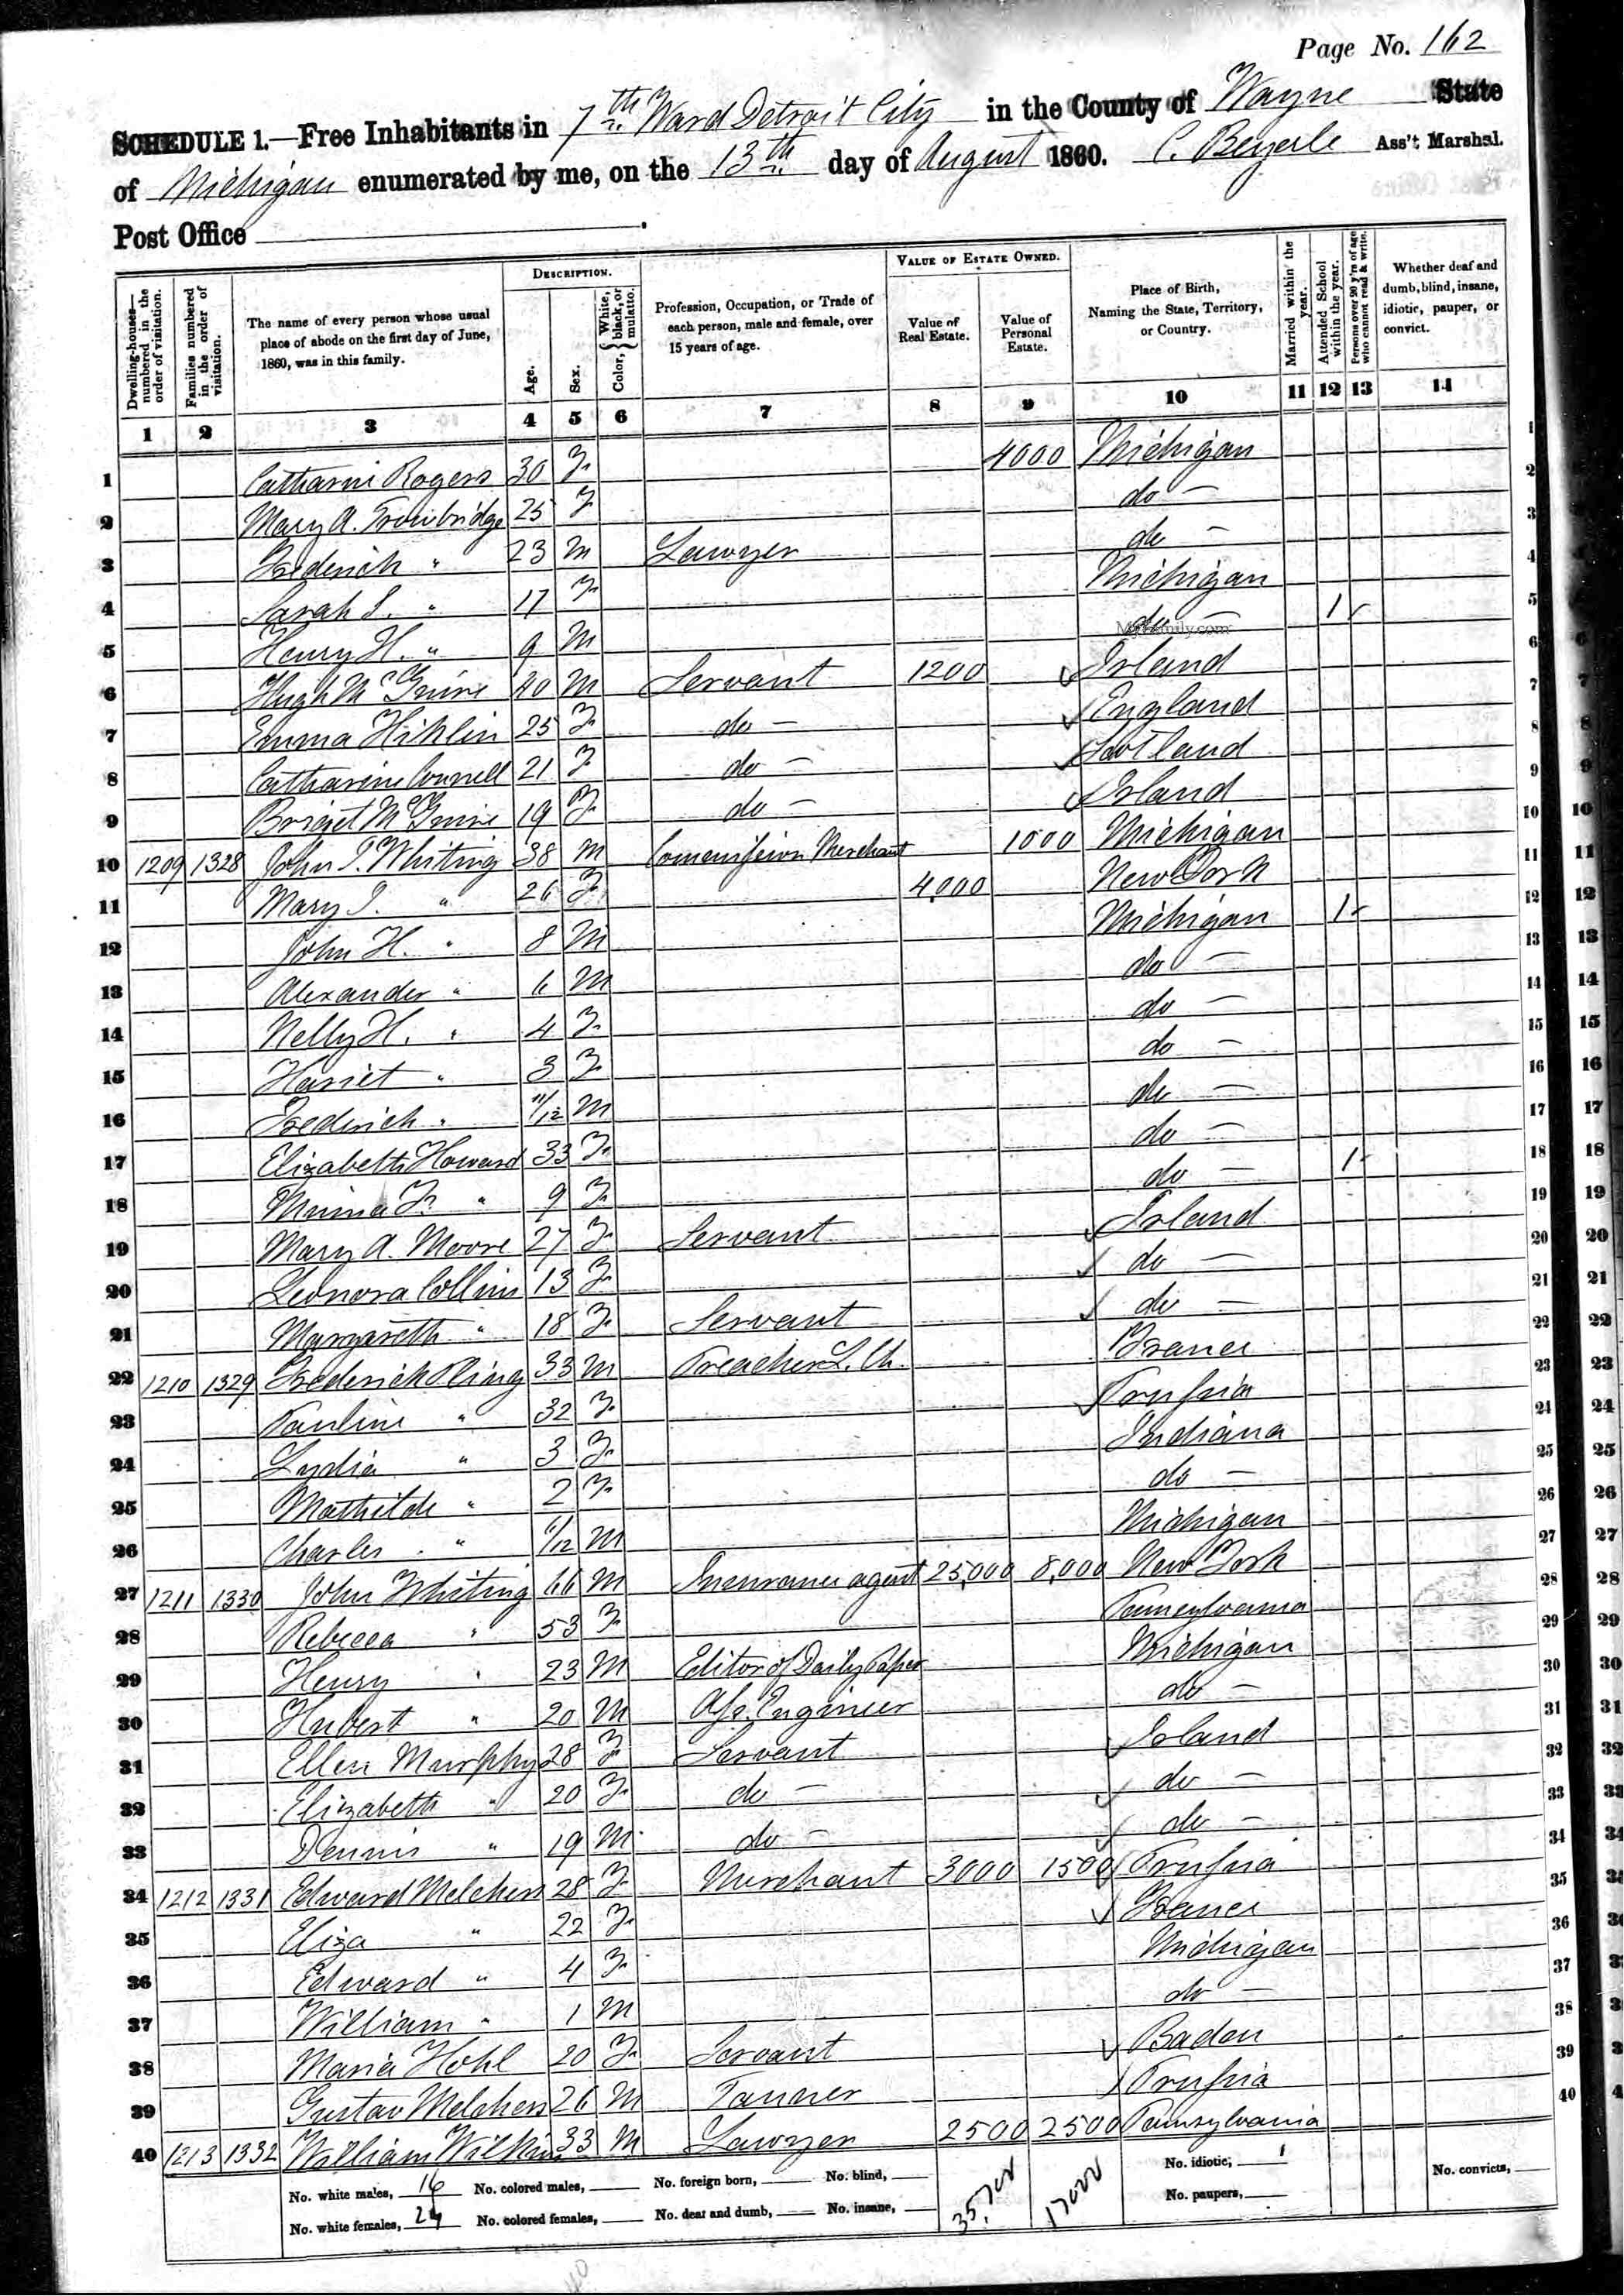 Page No. 162
SCHEDULE 1.—Free Inhabitants in 7th Ward Detroit City in the County of Wayne State
of Michigan enumerated by me, on the 13th day of August 1860. C. Beyerle Ass't Marshal.
Post Office
DESCRIPTION. VALUE OF ESTATE OWNED.
Dwelling-houses—numbered in the order of visitation.
Families numbered in the order of visitation.
The name of every person whose usual place of abode on the first day of June, 1860, was in this family.
Age.
Sex.
Color, { White, black, or mulatto.
Profession, Occupation, or Trade of each person, male and female, over 15 years of age.
Value of Real Estate.
Value of Personal Estate.
Place of Birth, Naming the State, Territory, or Country.
Married within the year.
Attended School within the year.
Persons over 20 y'rs of age who cannot read & write.
Whether deaf and dumb, blind, insane, idiotic, pauper, or convict.
1 2 3 4 5 6 7 8 9 10 11 12 13 14
1 Catharine Rogers 30 F 4000 Michigan 1
2 Mary A. Trowbridge 25 F do — 2
3 Frederich " 23 M Lawyer do — 3
4 Sarah S. " 17 F Michigan 4
5 Henry H. " 9 M do — 1 5
MyFamily.com
6 Hugh McGuire 20 M Servant 1200 Irland 6
7 Emma Hihlin 25 F do — England 7
8 Catharine Connell 21 F do — Scotland 8
9 Briget McGuire 19 F do — Irland 9
10 1209 1328 John T. Whiting 38 M Commission Merchant 1000 Michigan 10
11 Mary S. " 26 F 4,000 New York 11
12 John H. " 8 M Michigan 1 12
13 Alexander " 6 M do — 13
14 Nelly H. " 4 F do — 14
15 Harriet " 3 F do — 15
16 Frederich " 11/12 M do — 16
17 Elizabeth Howard 33 F do — 17
18 F. " 9 F do — 1 18
19 Mary A. Moore 27 F Servant Irland 19
20 Leonora Collins 13 F do — 20
21 Margareth " 18 F Servant do — 21
22 1210 1329 Frederich 33 M Preacher L. Ch. France 22
23 Pauline " 32 F Prussia 23
24 Lydia " 3 F Indiana 24
25 Mathilde " 2 F do — 25
26 Charles " /12 M Michigan 26
27 1211 1330 John Whiting 66 M Insurance agent 25,000 8,000 New York 27
28 Rebecca " 53 F Pennsylvania 28
29 Henry " 23 M Editor of Daily Paper Michigan 29
30 Hubert " 20 M Ass. Engineer do — 30
31 Ellen Murphy 28 F Servant Irland 31
32 Elizabeth " 20 F do — do — 32
33 Dennis " 19 M do — do — 33
34 1212 1331 Edward Melchers 28 F Merchant 3000 1500 Prussia 34
35 Eliza " 22 F France 35
36 Edward " 4 F Michigan 36
37 William " 1 M do — 37
38 Maria Hohl 20 F Servant Baden 38
39 Gustav Melchers 26 M Tanner Prussia 39
40 1213 1332 William Wilkins 33 M Lawyer 2500 2500 Pennsylvania 40
No. white males, 16 No. colored males, No. foreign born, No. blind, 35,700 17000 No. idiotic, No. convicts,
No. white females, 24 No. colored females, No. deaf and dumb, No. insane, No. paupers,
40